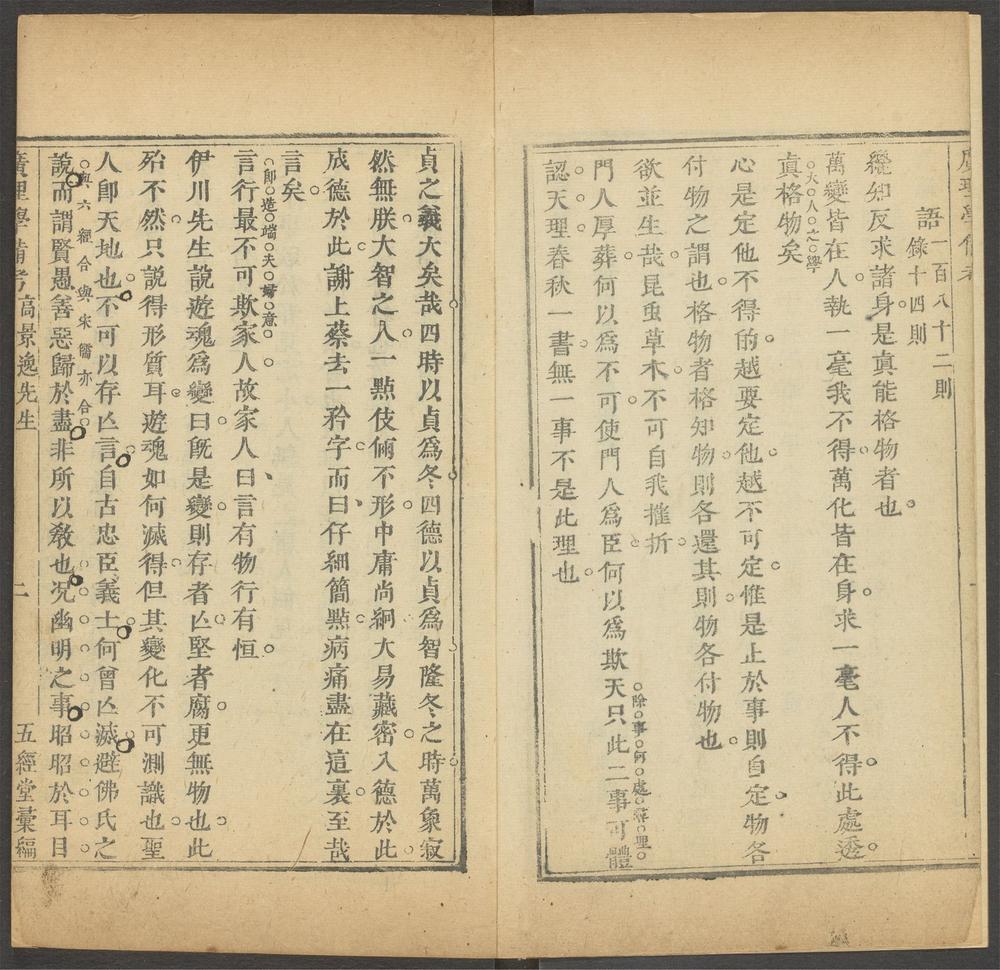 廣理學備考
語錄一百八十二則
十四則
纔知反求諸身是真能格物者也
萬變皆在人執一毫我不得萬化皆在身求一毫人不得此處透
真格物矣
大人之學
心是定他不得的越要定他越不可定惟是止於事則自定物各
付物之謂也格物者格知物則各還其則物各付物也
欲並生哉昆虫草木不可自我摧折
除事何處尋理
門人厚葬何以爲不可使門人爲臣何以爲欺天只此二事可體
認天理春秋一書無一事不是此理也
貞之義大矣哉四時以貞爲冬四德以貞爲智隆冬之時萬象寂
然無朕大智之人一點伎倆不形中庸尚絅大易藏密入德於此
成德於此謝上蔡去一矜字而曰仔細簡點病痛盡在這裏至哉
言矣
即造端夫婦意
言行最不可欺家人故家人曰言有物行有恒
伊川先生說遊魂爲變曰旣是變則存者亾堅者腐更無物也此
殆不然只說得形質耳遊魂如何滅得但其變化不可測識也聖
人卽天地也不可以存亾言自古忠臣義士何曾亾滅避佛氏之
與六經合與宋儒亦合
說而謂賢愚善惡歸於盡非所以敎也况幽明之事昭昭於耳目
廣理學備考 高景逸先生 二 五經堂彙編